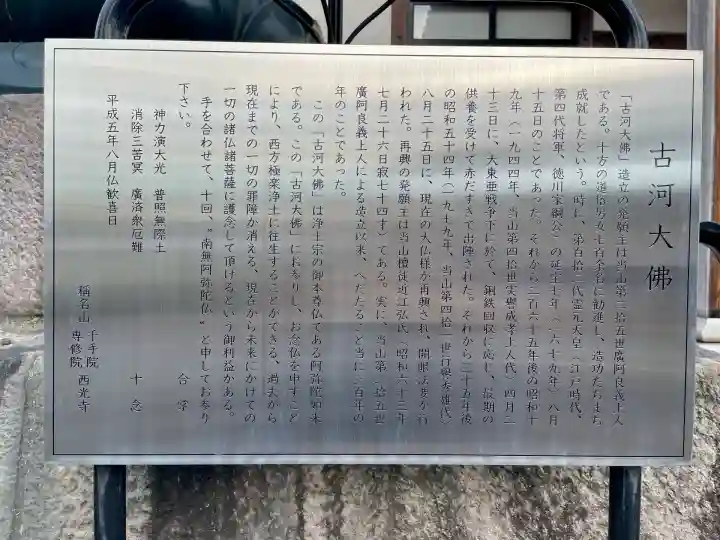 古河大佛
「古河大佛」造立の発願主は当山第二拾五世廣阿良義上人
である。十方の道俗男女七百余名に勧進し、造功たちまち
成就したという。時に、第百拾二代霊元天皇（江戸時代、
第四代将軍、徳川家綱公）の延宝七年（一六七九年）八月
十五日のことであった。それから二百六十五年後の昭和十
九年（一九四四年、当山第四拾世実譽成孝上人代）四月二
十三日に、大東亜戦争下に於て、銅鉄回収に応じ、最期の
供養を受けて赤だすきで出陣された。それから三十五年後
の昭和五十四年（一九七九年、当山第四拾一世行譽秀雄代）
八月二十五日に、現在の大仏様が再興され、開眼法要が行
われた。再興の発願主は当山檀徒近江弘氏（昭和六十三年
七月二十六日寂七十四才）である。実に、当山第二拾五世
廣阿良義上人による造立以来、へだたること当に三百年の
年のことであった。
この「古河大佛」は浄土宗の御本尊仏である阿弥陀如来
である。この「古河大佛」にお参りし、お念仏を申すこと
により、西方極楽浄土に往生することができる、過去から
現在までの一切の罪障が消える、現在から未来にかけての
一切の諸仏諸菩薩に護念して頂けるという御利益がある。
手を合わせて、十回、〝南無阿弥陀仏〟と申してお参り
下さい。
合掌
神力演大光 普照無際土
消除三苦冥 廣済衆厄難
十念
平成五年八月仏歓喜日
稱名山 千手院 専修院 西光寺